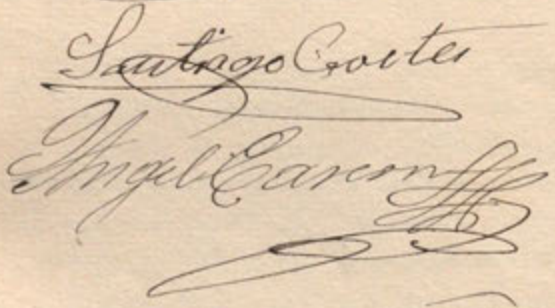 Santiago Cortes
Angel Garcon